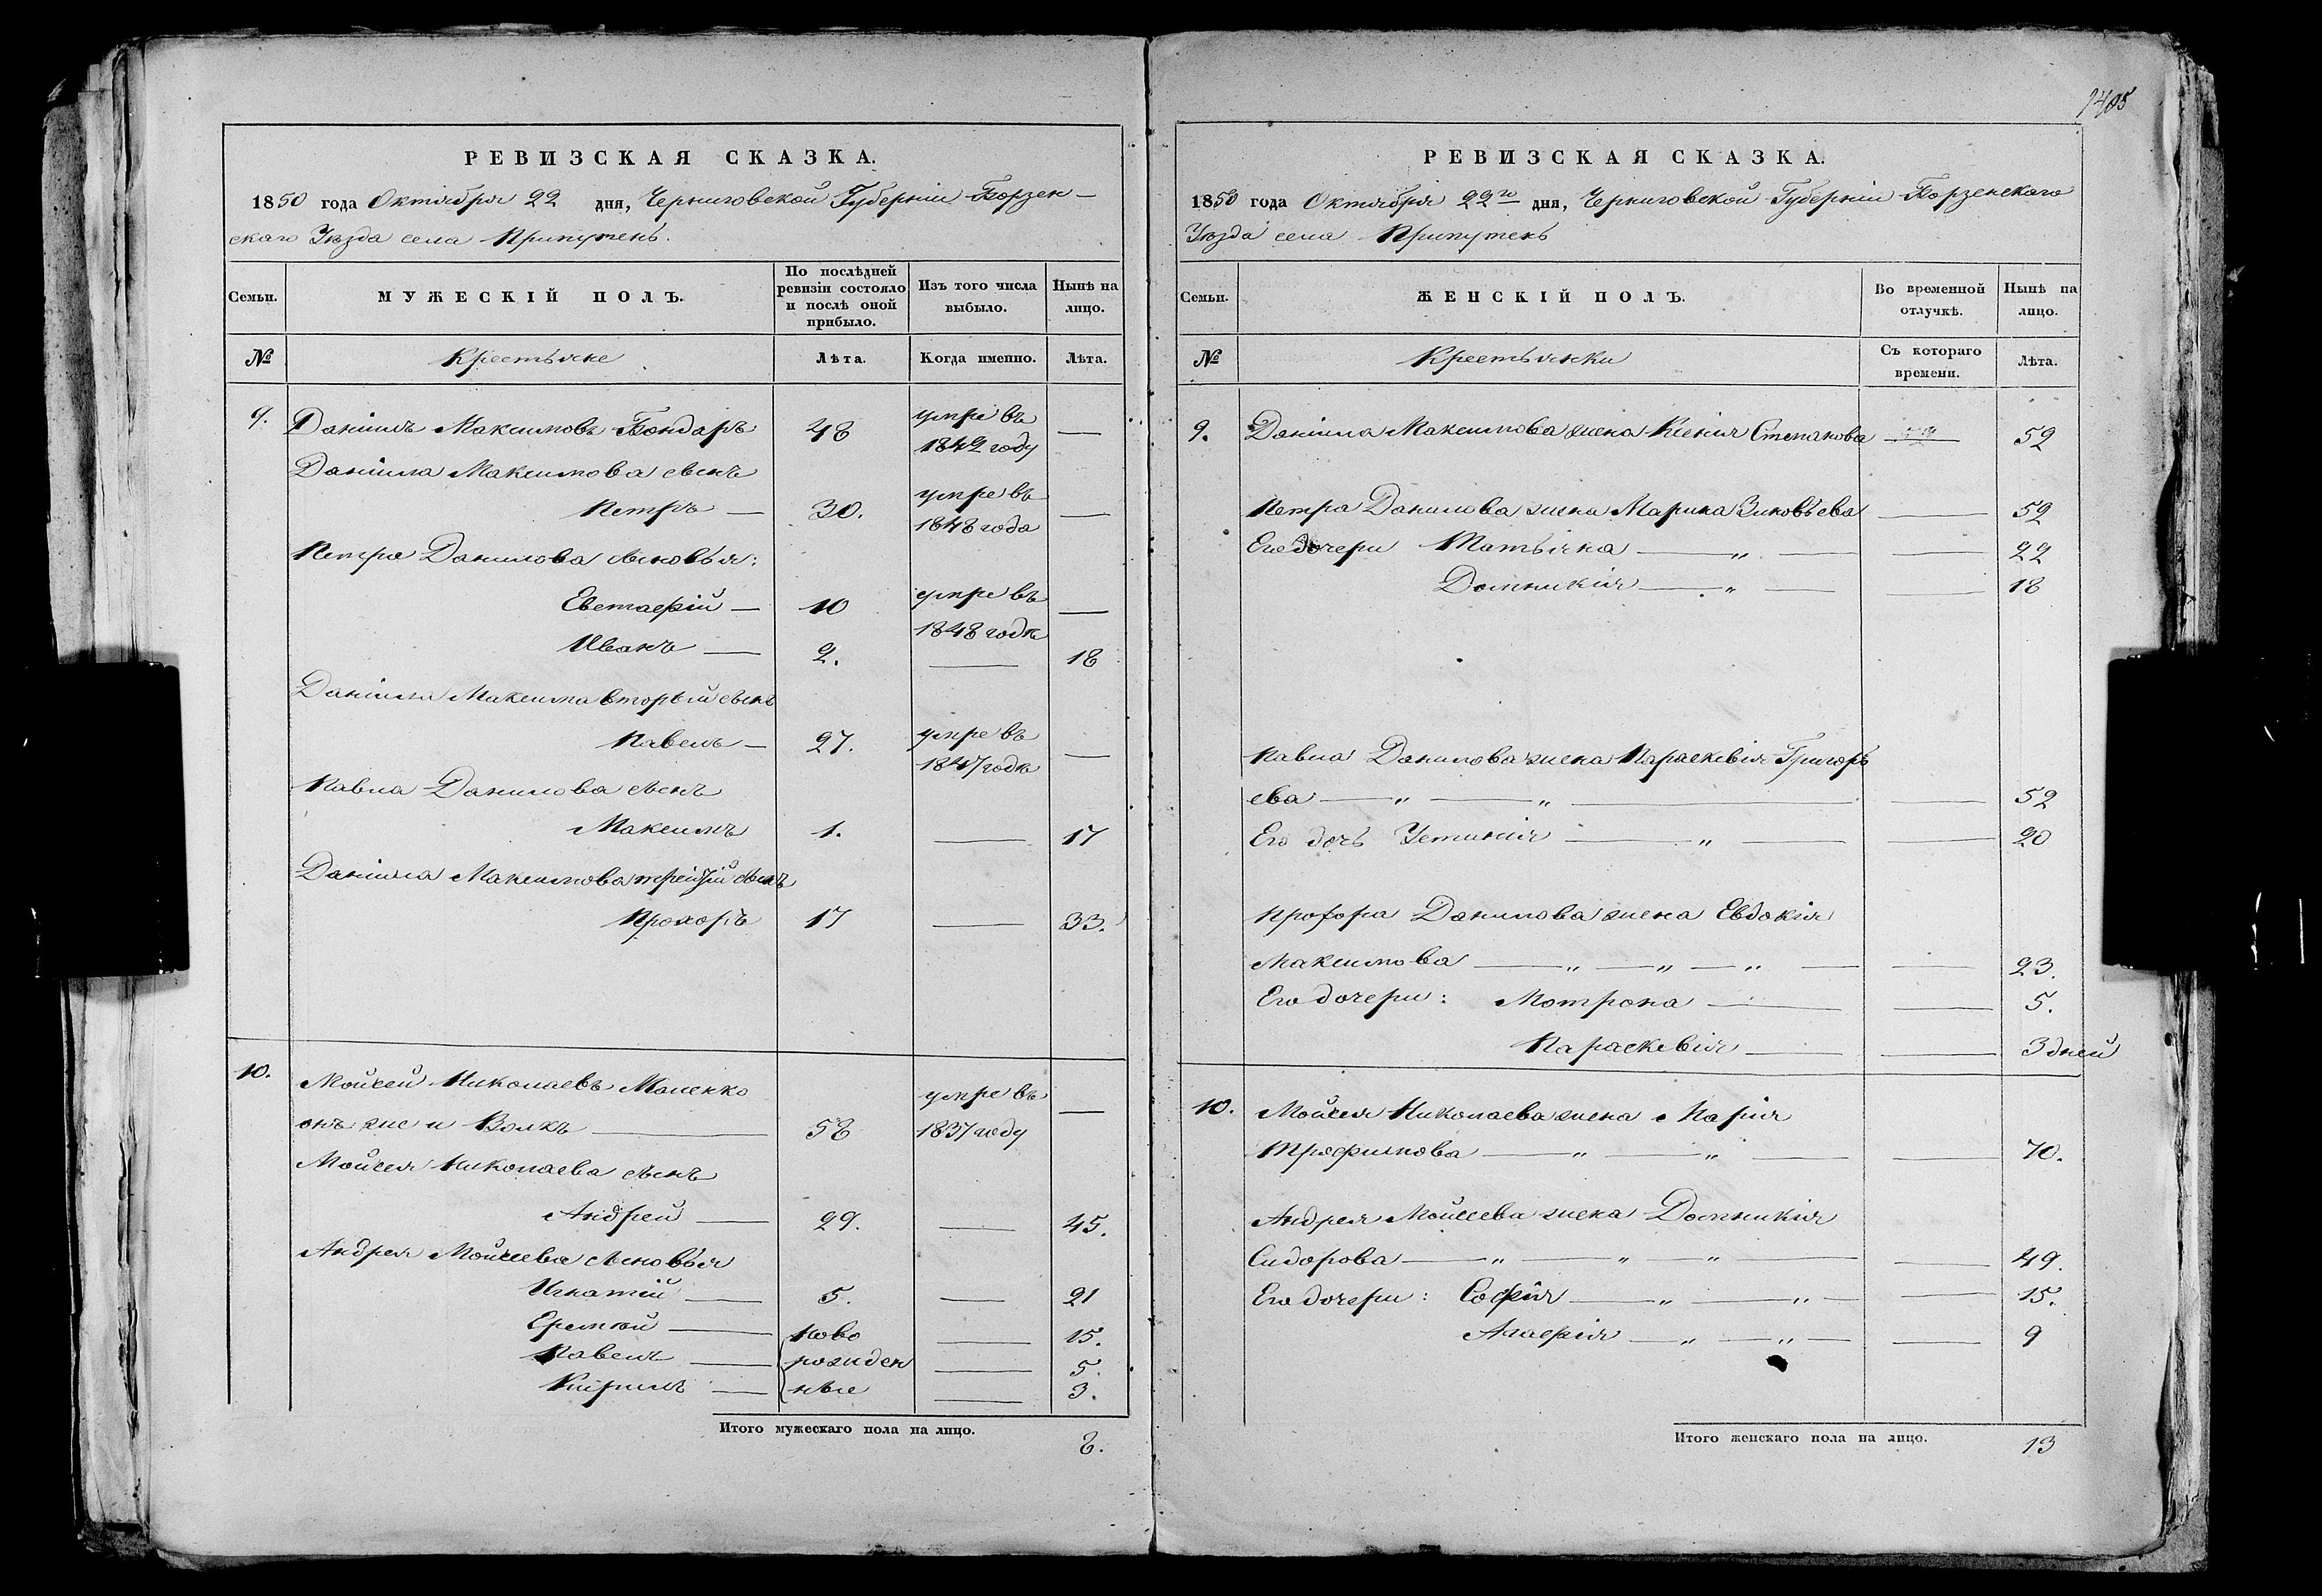 1405
РЕВИЗСКАЯ СКАЗКА.
1850 года Октября 22 дня, Черниговской Губерніи Борзен-
скаго Уѣзда села Припутень.
Семьи.
МУЖЕСКІЙ ПОЛЪ.
По послѣдней ревизіи состояло и послѣ оной прибыло.
Изъ того числа выбыло.
Нынѣ на лицо.
№ Крестьяне Лѣта. Когда именно. Лѣта.
9. Даніилъ Максимовъ Бондаръ 48 умре въ 1849 году —
Даніила Максимова сынъ
Петръ — 30. умре въ 1848 года —
Петра Данилова сыновья:
Евстафій — 10 умре въ 1848 года —
Иванъ — 2. — 18
Даніила Максима вторый сынъ
Павелъ — 27. умре въ 1847 года —
Павла Данилова сынъ
Максимъ 1. — 17
Даніила Максимова третій сынъ
Прохоръ 17 — 33.
10. Мойсей Николаевъ Маленко
онъ же и Волкъ — 58 умре въ 1837 году —
Мойсея Николаева сынъ
Андрей — 29. — 45.
Андрея Мойсеева сыновья
Игнатій — 5. — 21
Еремѣй — ново — 15.
Павелъ — рожден — 5.
Кирилъ — ные — 3.
Итого мужескаго пола на лицо. 8.
РЕВИЗСКАЯ СКАЗКА.
1850 года Октября 22го дня, Черниговской Губерніи Борзенскаго
Уѣзда села Припутень
Семьи.
ЖЕНСКІЙ ПОЛЪ.
Во временной отлучкѣ.
Нынѣ на лицо.
№ Крестьянки Съ котораго времени. Лѣта.
9. Даніила Максимова жена Ксенія Степанова — 59
Петра Данилова жена Марина Зиновьева — 52
Его дочери Татьяна — „ — — 22
Домникія — „ — — 18
Павла Данилова жена Параскевія Григорь
ева — „ — „ — — 52
Его дочь Устинія — „ — — 20
Прохора Данилова жена Евдокія
Максимова — „ — „ — „ — — 23.
Его дочери: Мотрона — — 5.
Параскевія — — 3 дней
10. Мойсея Николаева жена Марія
Трофимова — „ — „ — — 70.
Андрея Мойсеева жена Домникія
Сидорова — „ — „ — „ — — 49.
Его дочери: Софія — „ — „ — — 15.
Агафія — „ — „ — — 9
Итого женскаго пола на лицо. 13